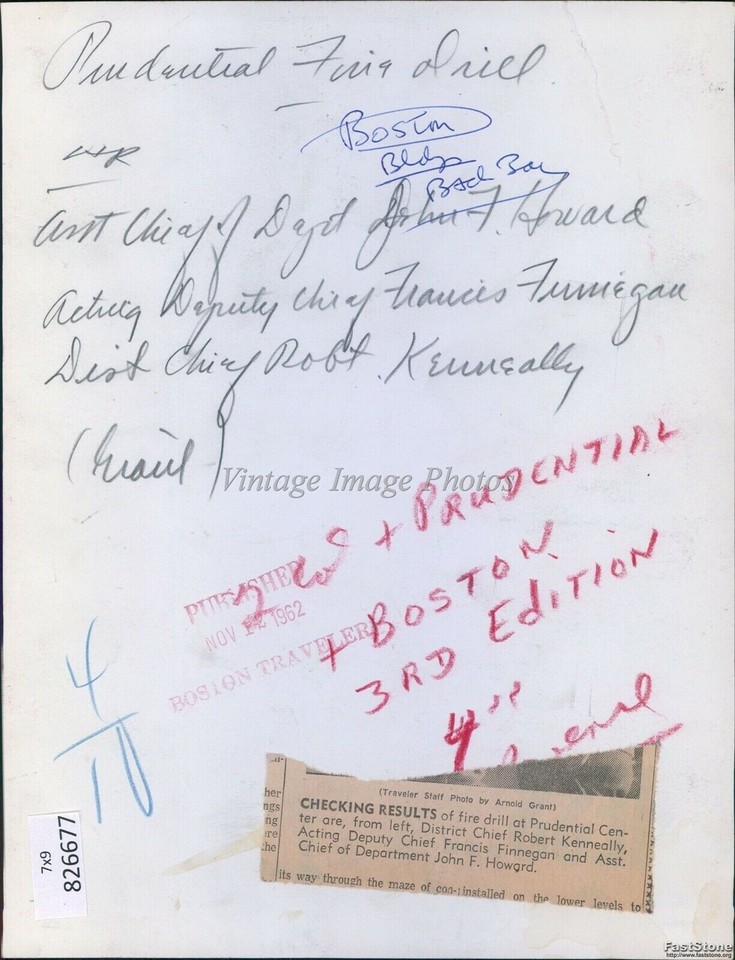 Prudential Fire Drill
Boston
Bldgs
Back Bay
Asst Chief of Dept John F. Howard
Acting Deputy Chief Francis Finnegan
Dist Chief Robt. Kenneally
(Grant)
Vintage Image Photos
+ PRUDENTIAL
PUBLISHED
NOV 12 1962
BOSTON TRAVELER
+ BOSTON
3RD EDITION
4"
4/10
(Traveler Staff Photo by Arnold Grant)
CHECKING RESULTS of fire drill at Prudential Cen-
ter are, from left, District Chief Robert Kenneally,
Acting Deputy Chief Francis Finnegan and Asst.
Chief of Department John F. Howard.
her
ngs
ng
ere
the
its way through the maze of con- installed on the lower levels to
7x9
826677
FastStone
http://www.faststone.org